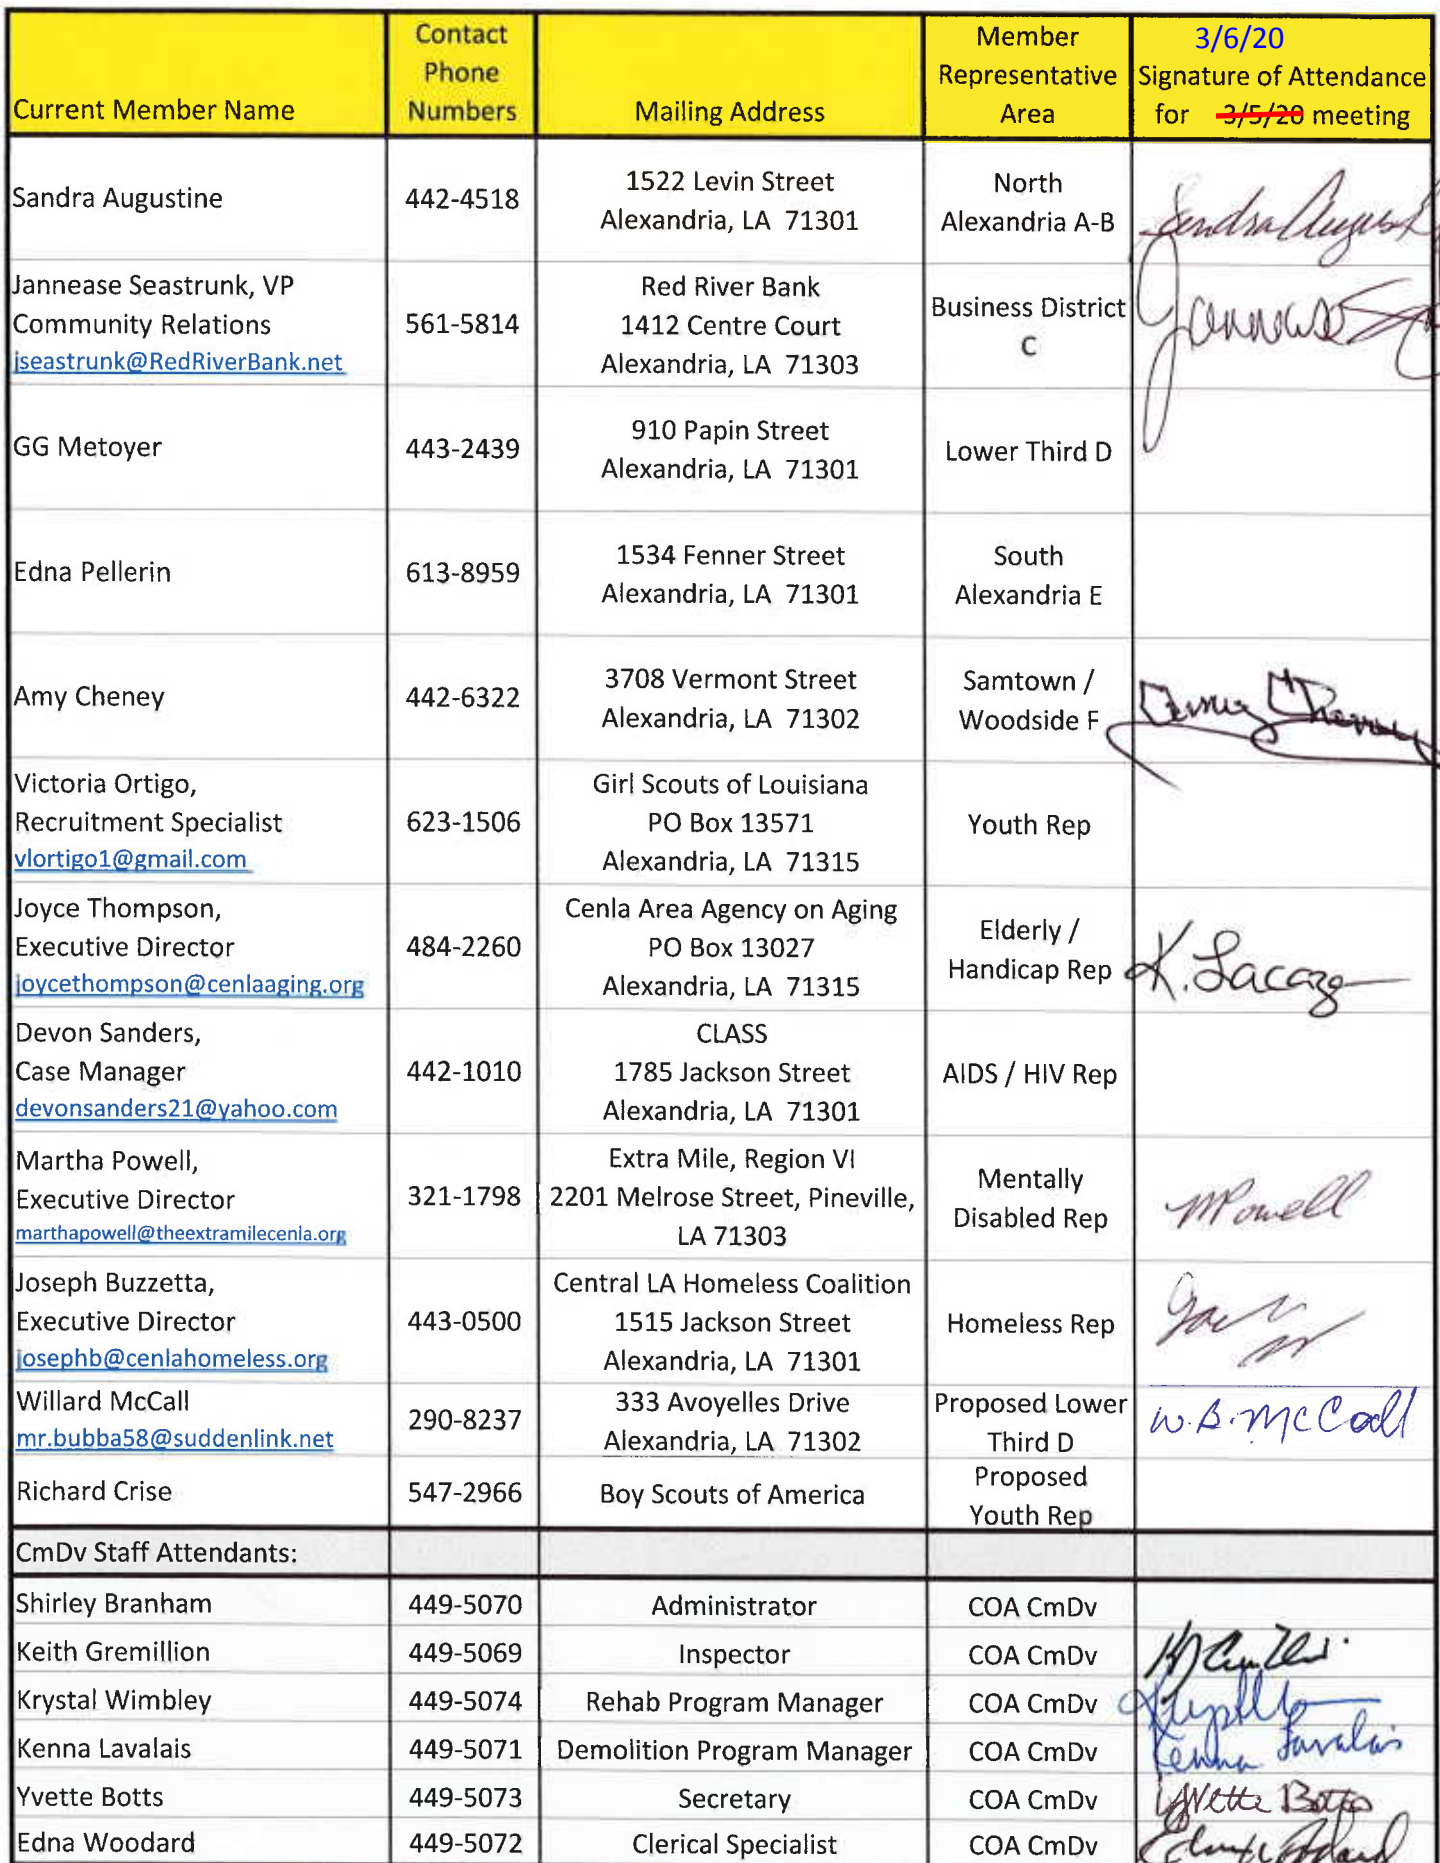 Current Member Name
Contact
Phone
Numbers
Mailing Address
Member
Representative
Area
3/6/20
Signature of Attendance
for 3/5/20 meeting
Sandra Augustine
442-4518
1522 Levin Street
Alexandria, LA 71301
North
Alexandria A-B
Jannease Seastrunk, VP
Community Relations
jseastrunk@RedRiverBank.net
561-5814
Red River Bank
1412 Centre Court
Alexandria, LA 71303
Business District
C
GG Metoyer
443-2439
910 Papin Street
Alexandria, LA 71301
Lower Third D
Edna Pellerin
613-8959
1534 Fenner Street
Alexandria, LA 71301
South
Alexandria E
Amy Cheney
442-6322
3708 Vermont Street
Alexandria, LA 71302
Samtown /
Woodside F
Amy Cheney
Victoria Ortigo,
Recruitment Specialist
vlortigo1@gmail.com
623-1506
Girl Scouts of Louisiana
PO Box 13571
Alexandria, LA 71315
Youth Rep
Joyce Thompson,
Executive Director
joycethompson@cenlaaging.org
484-2260
Cenla Area Agency on Aging
PO Box 13027
Alexandria, LA 71315
Elderly /
Handicap Rep
K. Lacaze
Devon Sanders,
Case Manager
devonsanders21@yahoo.com
442-1010
CLASS
1785 Jackson Street
Alexandria, LA 71301
AIDS / HIV Rep
Martha Powell,
Executive Director
marthapowell@theextramilecenla.org
321-1798
Extra Mile, Region VI
2201 Melrose Street, Pineville,
LA 71303
Mentally
Disabled Rep
MPowell
Joseph Buzzetta,
Executive Director
josephb@cenlahomeless.org
443-0500
Central LA Homeless Coalition
1515 Jackson Street
Alexandria, LA 71301
Homeless Rep
Willard McCall
mr.bubba58@suddenlink.net
290-8237
333 Avoyelles Drive
Alexandria, LA 71302
Proposed Lower
Third D
W.B. McCall
Richard Crise
547-2966
Boy Scouts of America
Proposed
Youth Rep
CmDv Staff Attendants:
Shirley Branham
449-5070
Administrator
COA CmDv
Keith Gremillion
449-5069
Inspector
COA CmDv
Krystal Wimbley
449-5074
Rehab Program Manager
COA CmDv
Kenna Lavalais
449-5071
Demolition Program Manager
COA CmDv
Kenna Lavalais
Yvette Botts
449-5073
Secretary
COA CmDv
Yvette Botts
Edna Woodard
449-5072
Clerical Specialist
COA CmDv